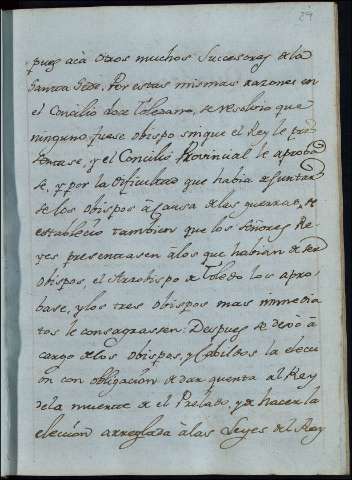 29
pues acà otros muchos Successores de la
Santa Sede. Por estas mismas razones en
el Concilio doze Toledano, se resolvio que
ninguno fuese obispo sin que el Rey le pre
sentase, y el Concilio Provincial le aproba
se, y por la dificultad que habia de juntar
se los obispos à causa de las guerras, se
estableciò tambien que los señores Re
yes presentasen à los que habian de ser
obispos, el Arzobispo de Toledo los apro
base, y los tres obispos mas immedia
tos le consagrassen: Despues se dexò à
cargo de los obispos, y Cabildos la elecci
on con obligacion de dar quenta al Rey
de la muerte de el Prelado, y de hacer la
eleccion arreglada à las Leyes del Rey